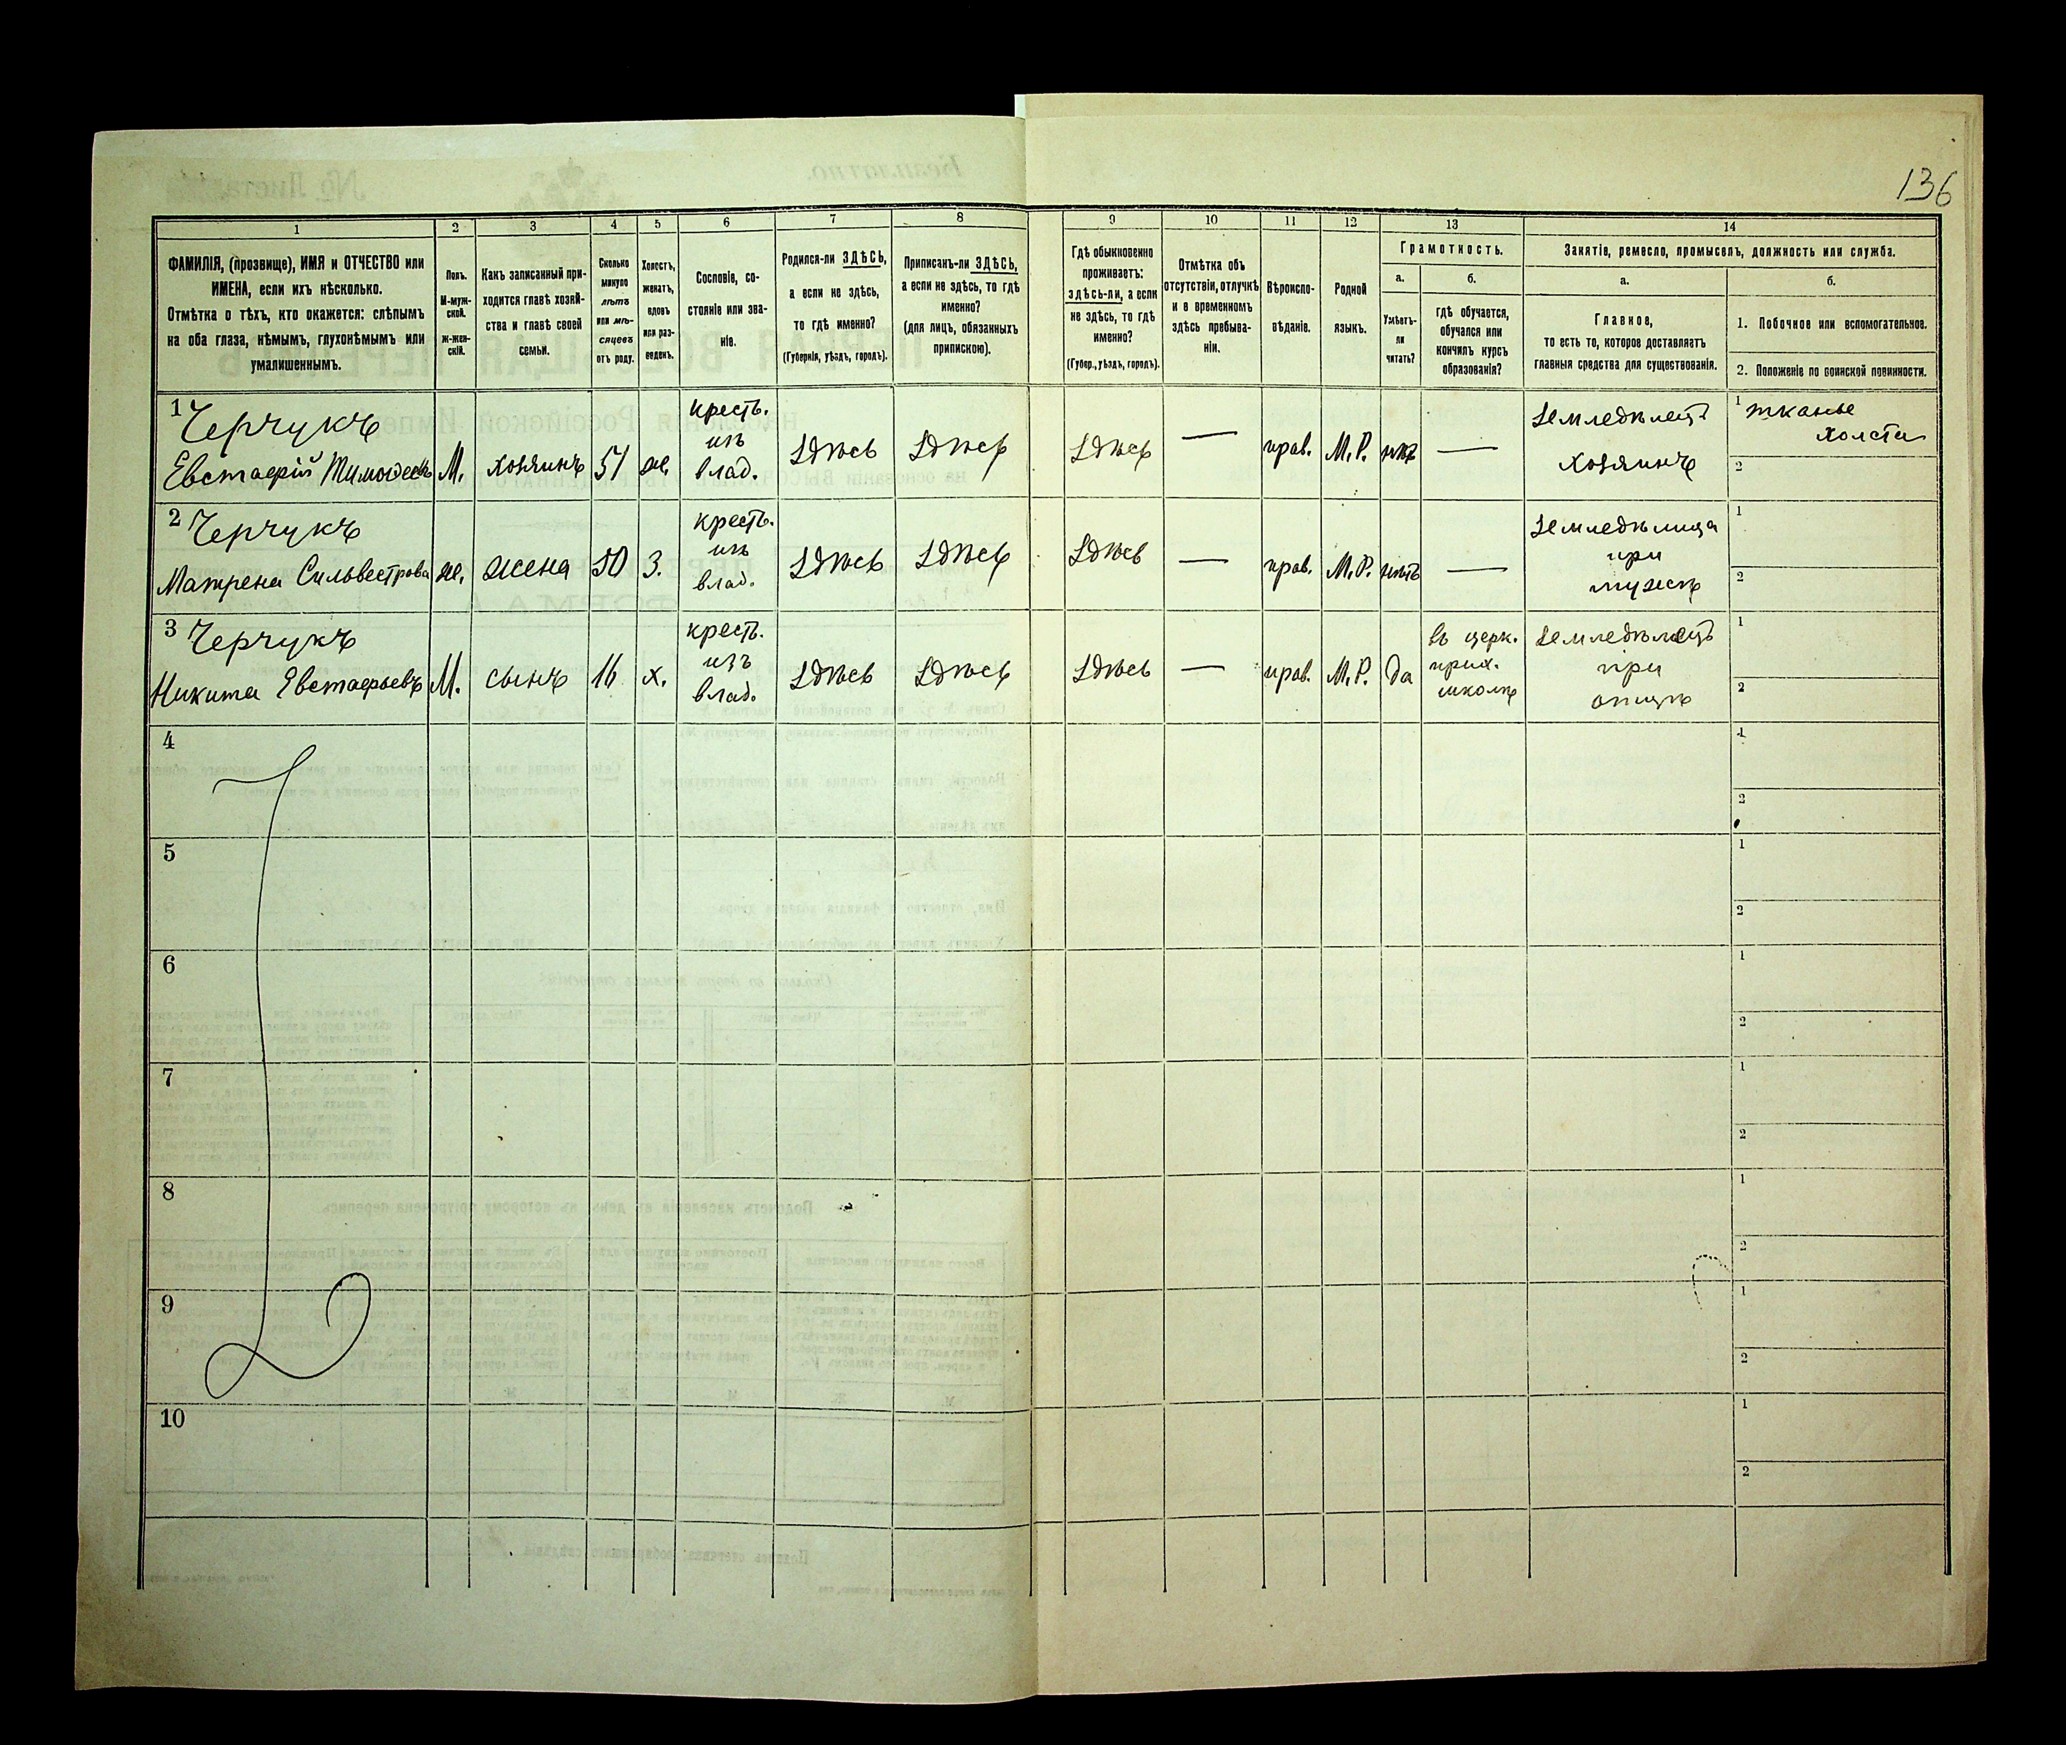 136
1
2
3
4
5
6
7
8
9
10
11
12
13
14
ФАМИЛІЯ, (прозвище), ИМЯ и ОТЧЕСТВО или
ИМЕНА, если ихъ нѣсколько.
Отмѣтка о тѣхъ, кто окажется: слѣпымъ
на оба глаза, нѣмымъ, глухонѣмымъ или
умалишеннымъ.
Полъ.
М-муж-
ской.
Ж-жен-
скій.
Какъ записанный при-
ходится главѣ хозяй-
ства и главѣ своей
семьи.
Сколько
минуло
лѣтъ
или мѣ-
сяцевъ
отъ роду.
Холостъ,
женатъ,
вдовъ
или раз-
веденъ.
Сословіе, со-
стояніе или зва-
ніе.
Родился-ли ЗДѢСЬ,
а если не здѣсь,
то гдѣ именно?
(Губернія, уѣздъ, городъ).
Приписанъ-ли ЗДѢСЬ,
а если не здѣсь, то гдѣ
именно?
(для лицъ, обязанныхъ
припискою).
Гдѣ обыкновенно
проживаетъ:
здѣсь-ли, а если
не здѣсь, то гдѣ
именно?
(Губер., уѣздъ, городъ).
Отмѣтка объ
отсутствіи, отлучкѣ
и о временномъ
здѣсь пребыва-
ніи.
Вѣроиспо-
вѣданіе.
Родной
языкъ.
Грамотность.
а.
Умѣетъ-
ли
читать?
б.
гдѣ обучается,
обучался или
кончилъ курсъ
образованія?
Занятіе, ремесло, промыселъ, должность или служба.
а.
Главное,
то есть то, которое доставляетъ
главныя средства для существованія.
б.
1. Побочное или вспомогательное.
2. Положеніе по воинской повинности.
1 Черчукъ
Евстафій Тимофеевъ
М.
хозяинъ
51
же.
крест.
изъ
влад.
здѣсь
здѣсь
здѣсь
—
прав.
М.Р.
нѣтъ
—
земледѣлецъ
хозяинъ
1 тканье
холста
2
2 Черчукъ
Матрена Сильвестрова
же.
жена
50
З.
крест.
изъ
влад.
здѣсь
здѣсь
здѣсь
—
прав.
М.Р.
нѣтъ
—
земледѣлица
при
мужѣ
1
2
3 Черчукъ
Никита Евстафьевъ
М.
сынъ
16
х.
крест.
изъ
влад.
здѣсь
здѣсь
здѣсь
—
прав.
М.Р.
да
въ церк.
прих.
школѣ
земледѣлецъ
при
отцѣ
1
2
4
1
2
5
1
2
6
1
2
7
1
2
8
1
2
9
1
2
10
1
2